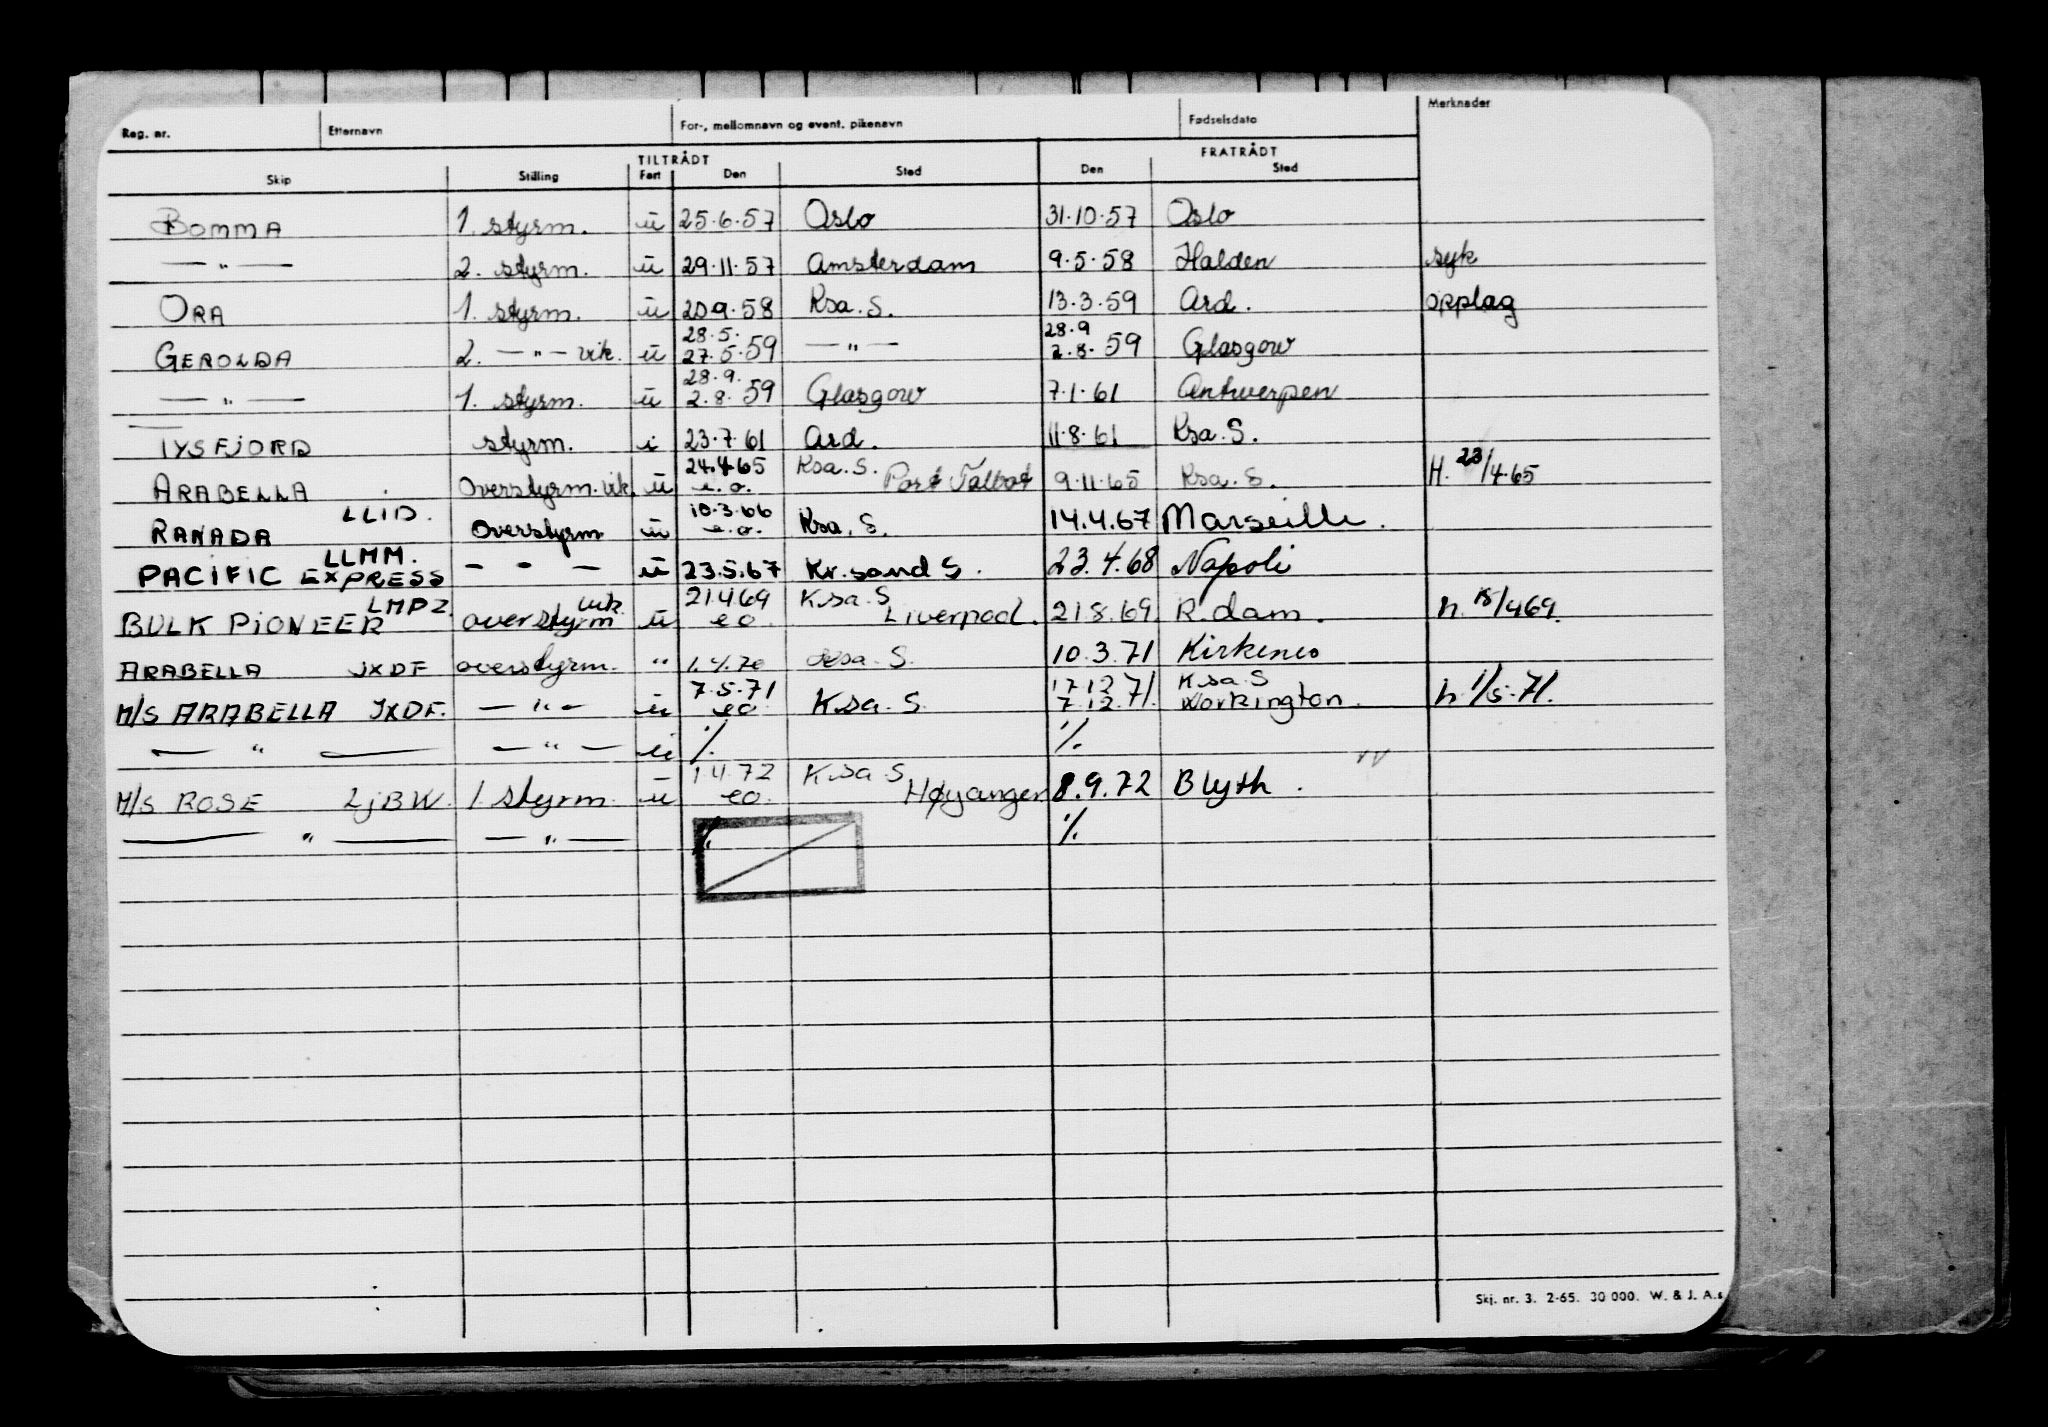 Reg. nr. Etternavn For-, mellomnavn og event. pikenavn Fødselsdato Merknader
TILTRÅDT FRATRÅDT
Skip Stilling Fart Den Sted Den Sted
BOMMA 1. styrm. ū 25.6.57 Oslo 31.10.57 Oslo
— " — 2. styrm. ū 29.11.57 Amsterdam 9.5.58 Halden syk
ORA 1. styrm. ū 20 9.58 Ksa. S. 13.3.59 Ard. opplag
28.5. 28.9
GEROLDA 2. — " — vik. ū 27.5.59 — " — 2.8.59 Glasgow
28.9.
— " — 1. styrm. ū 2.8.59 Glasgow 7.1.61 Antwerpen
TYSFJORD styrm. i 23.7.61 Ard. 11.8.61 Ksa. S.
24.4.65 Ksa. S.
ARABELLA Overstyrm. vik. ū e.o. Port Talbot 9.11.65 Ksa. S. H. 23/4.65
LLID. 10.3.66
RANADA Overstyrm ū e.o. Ksa. S. 14.4.67 Marseille.
LLMM.
PACIFIC EXPRESS — " — ū 23.5.67 Kr. sand S. 23.4.68 Napoli
LMPZ vik. 21469 Ksa. S
BULK PIONEER overstyrm ū eo Liverpool. 21 8.69. R.dam. h. 18/469.
ARABELLA JXDF overstyrm. " 1.4.70 Ksa. S. 10.3.71 Kirkenes
7.5.71 17.12 Ksa. S
M/S ARABELLA JXDF. — " — ū eo Ksa. S. 7.12.71. Workington. h. 1/5-71.
— " — — " — ū ·/. ·/.
1.4.72 Ksa. S
M/S ROSE LJBW. 1 styrm. ū eo. Høyanger 8.9.72 Blyth.
— " — — " — ·/. ·/.
Skj. nr. 3. 2-65. 30 000. W. & J. A.s